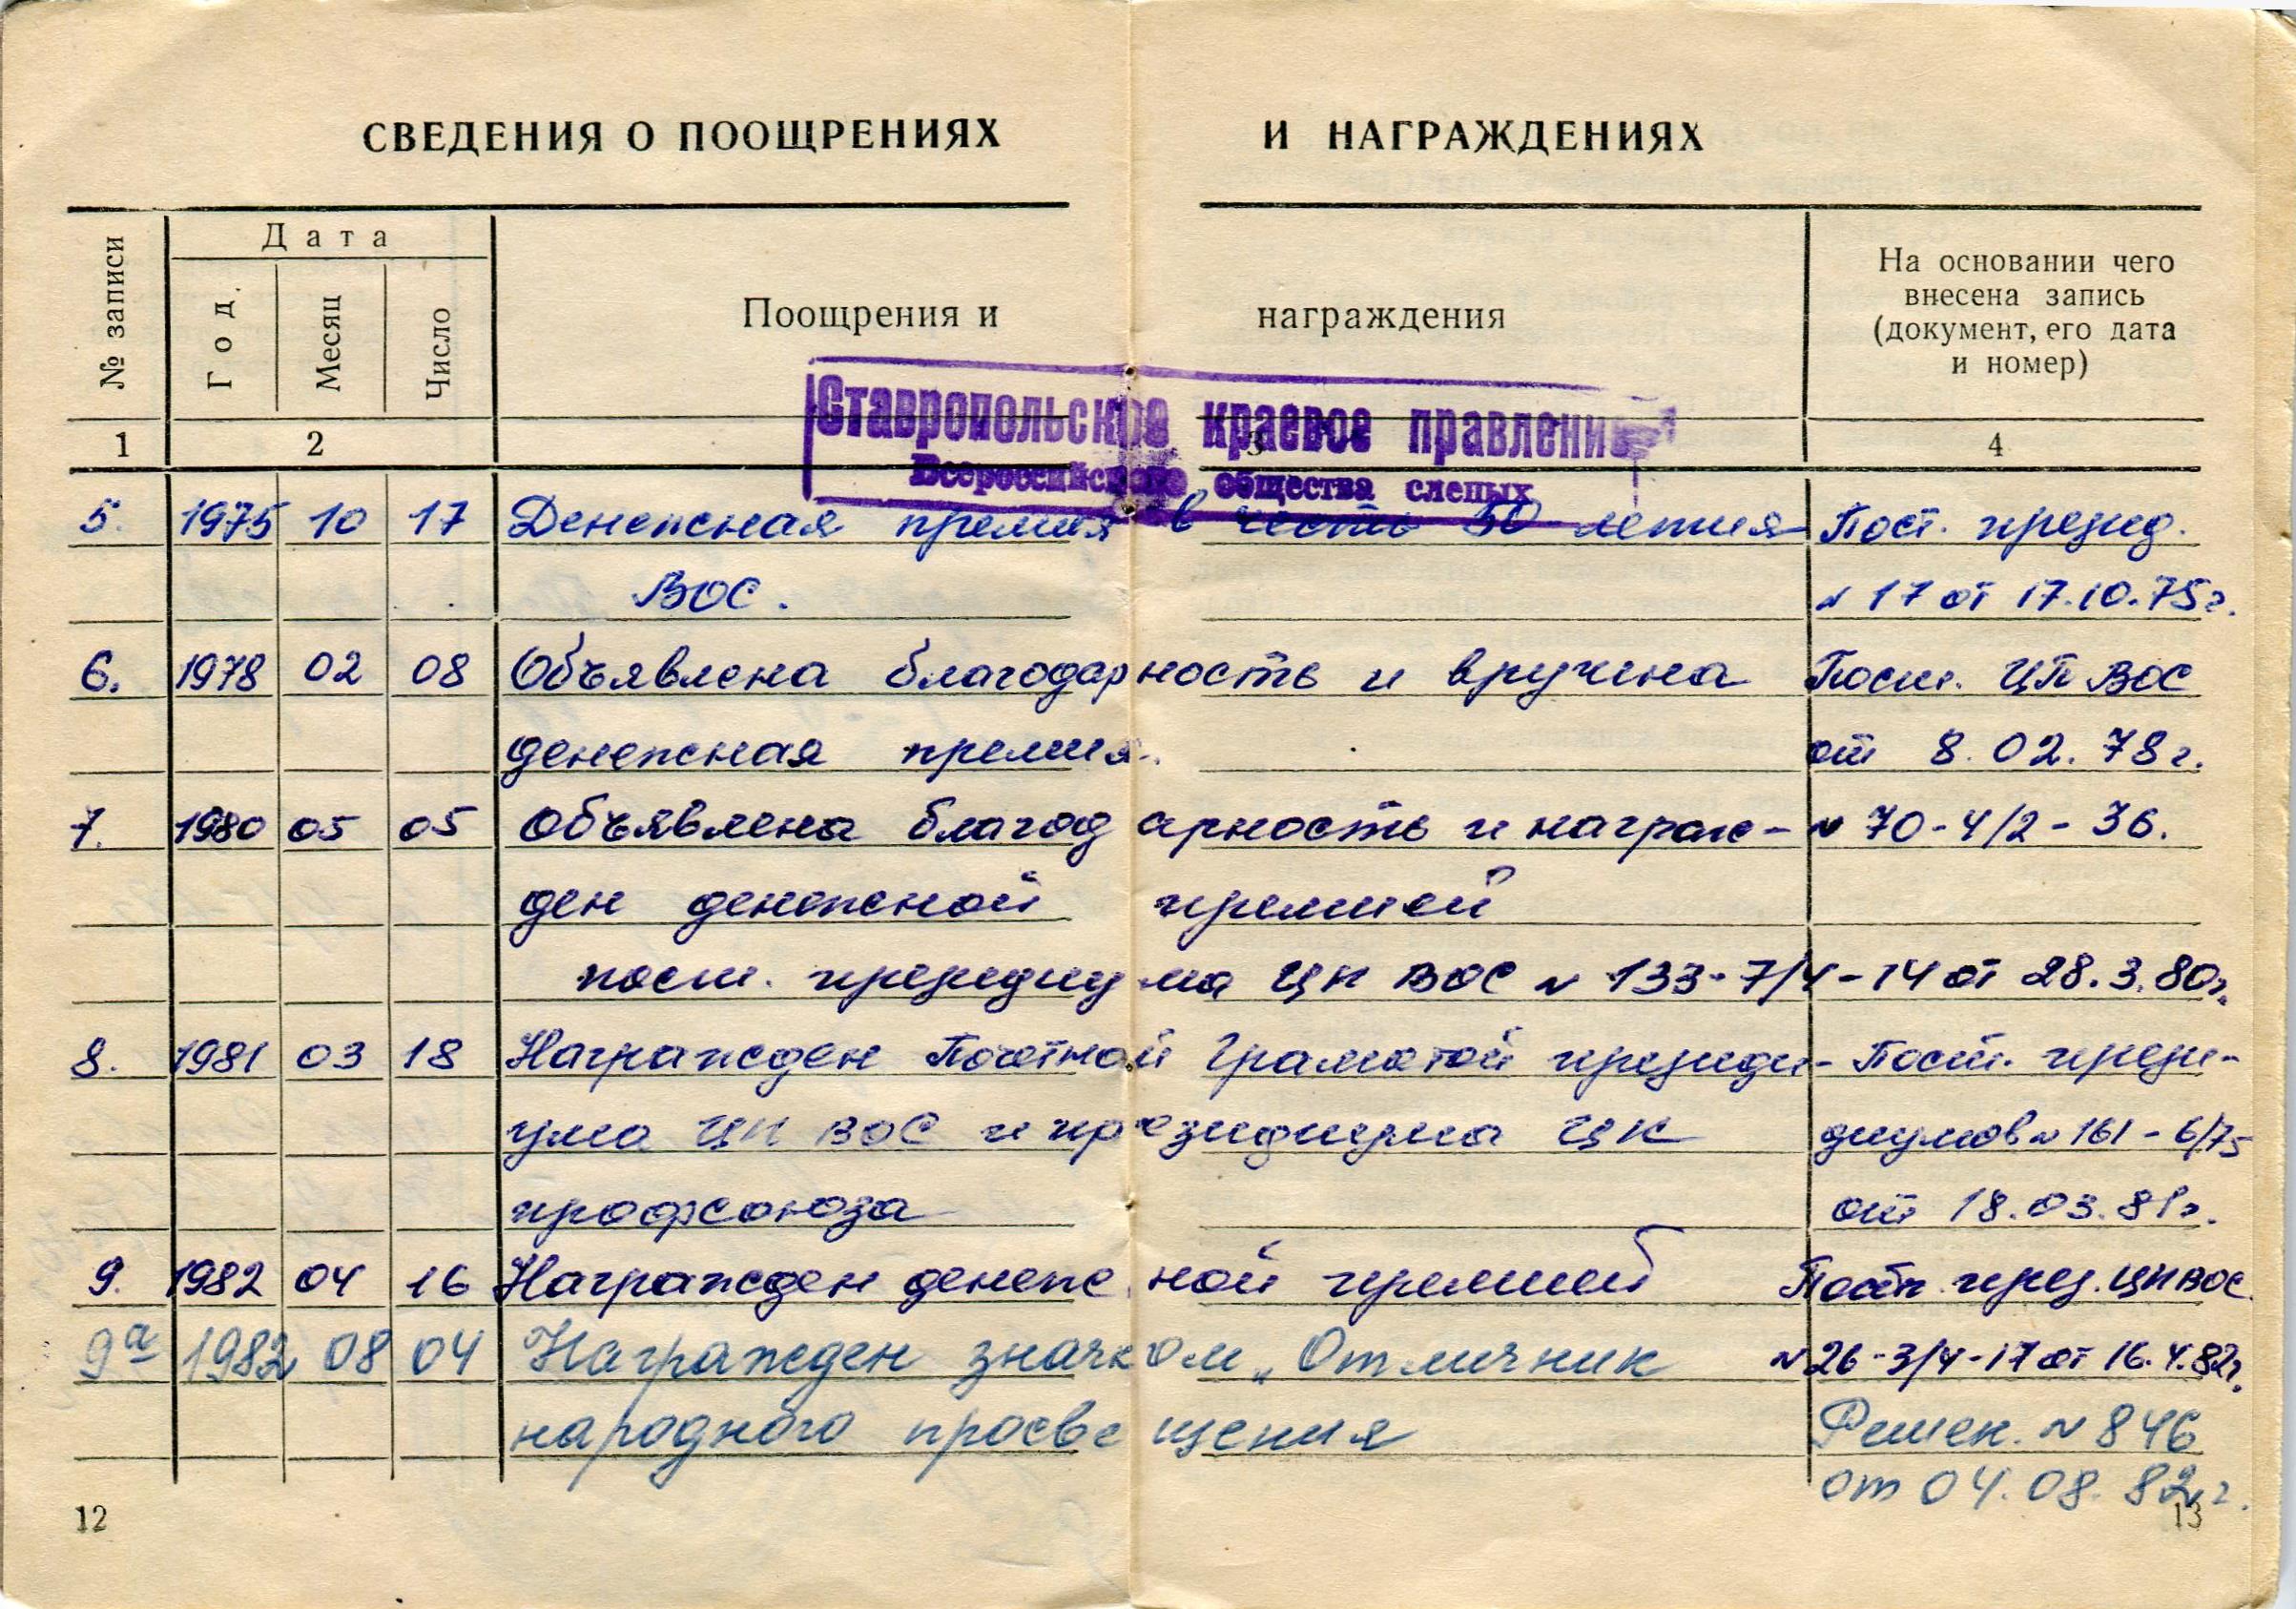 СВЕДЕНИЯ О ПООЩРЕНИЯХ И НАГРАЖДЕНИЯХ
№ записи
Дата
Год.
Месяц
Число
Поощрения и награждения
На основании чего
внесена запись
(документ, его дата
и номер)
Ставропольское краевое правление
Всероссийского общества слепых
1 2 3 4
5. 1975 10 17 Денежная премия в честь 50 летия Пост. презид.
ВОС. № 17 от 17.10.75г.
6. 1978 02 08 Объявлена благодарность и вручена Пост. ЦП ВОС
денежная премия. от 8.02.78г.
7. 1980 05 05 Объявлена благодарность и награж- № 70-4/2-36.
ден денежной премией
пост. президиума ЦП ВОС № 133-7/4-14 от 28.3.80г.
8. 1981 03 18 Награжден Почетной Грамотой президи- Пост. прези-
ума ЦП ВОС и президиума ЦК диумов № 161-6/75
профсоюза от 18.03.81г.
9. 1982 04 16 Награжден денежной премией Пост. през. ЦП ВОС
9а 1982 08 04 Награжден значком „Отличник № 26-3/4-17 от 16.4.82г.
народного просвещения Решен. № 846
от 04.08.82г.
12 13